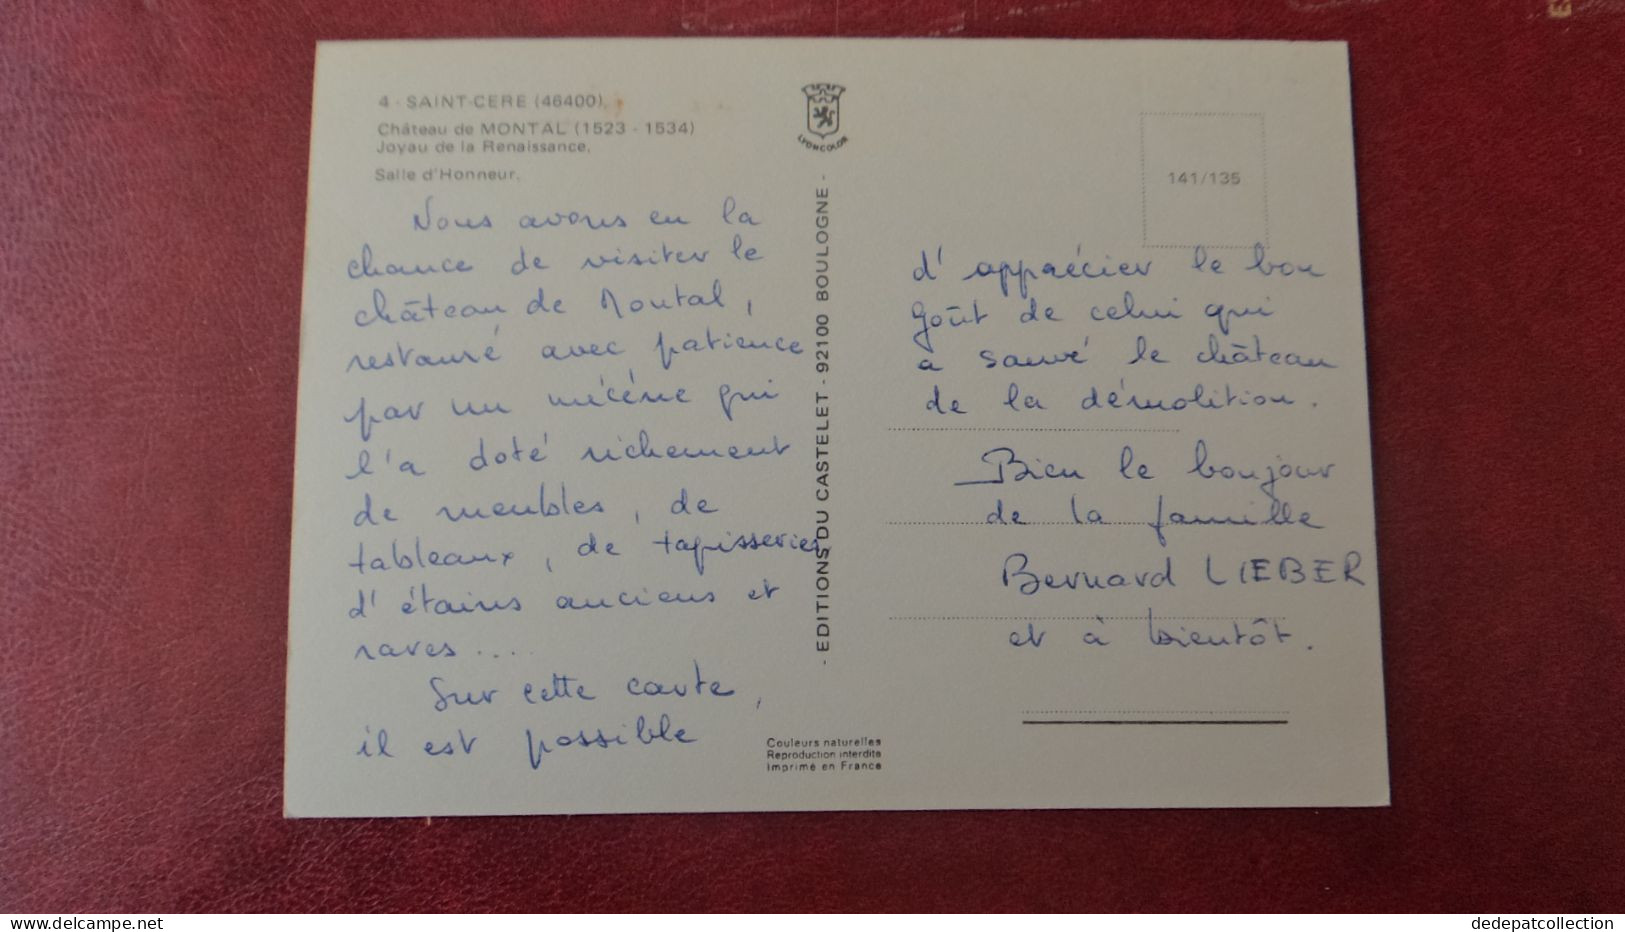 4 - SAINT-CERE (46400)
Château de MONTAL (1523 - 1534)
Joyau de la Renaissance.
Salle d'Honneur.
Nous avons eu la
chance de visiter le
château de Montal,
restauré avec patience
par un mécène qui
l'a doté richement
de meubles, de
tableaux, de tapisseries,
d'étains anciens et
rares....
Sur cette carte,
il est possible
LYONCOLOR
- EDITIONS DU CASTELET - 92100 BOULOGNE -
Couleurs naturelles
Reproduction interdite
Imprimé en France
141/135
d'apprécier le bon
goût de celui qui
a sauvé le château
de la démolition.
Bien le bonjour
de la famille
Bernard LIEBER
et à bientôt.
www.delcampe.net
dedepatcollection